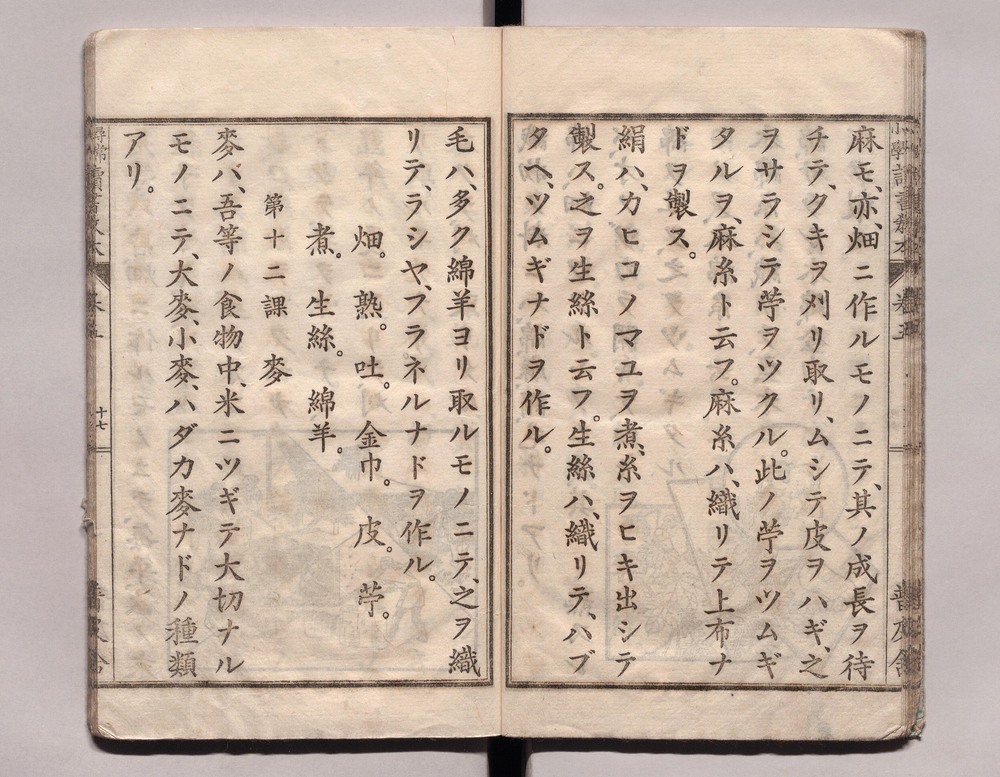 麻モ、亦、畑ニ作ルモノニテ、其ノ成長ヲ待
チテ、クキヲ刈リ取リ、ムシテ皮ヲハギ、之
ヲサラシテ苧ヲツクル。此ノ苧ヲツムギ
タルヲ、麻糸ト云フ。麻糸ハ、織リテ上布ナ
ドヲ製ス。
絹ハ、カヒコノマユヲ煮、糸ヲヒキ出シテ
製ス。之ヲ生絲ト云フ。生絲ハ、織リテ、ハブ
タヘ、ツムギナドヲ作ル。
毛ハ、多ク綿羊ヨリ取ルモノニテ、之ヲ織
リテ、ラシヤ、フラネルナドヲ作ル。
畑。熟。吐。金巾。皮。苧。
煮。生絲。綿羊。
第十二課 麥
麥バ、吾等ノ食物中、米ニツギテ大切ナル
モノニテ、大麥、小麥、ハダカ麥ナドノ種類
アリ。
十七